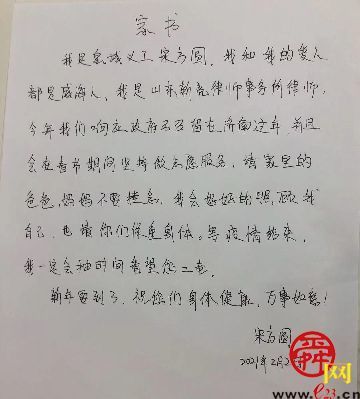 家书
我是泉城义工宋方圆，我和我的爱人
都是威海人，我是山东乾元律师事务所律师，
今年我们响应政府号召留在济南过年 并且
会在春节期间坚持做志愿服务，请家里的
爸爸，妈妈不要挂念，我会好好的照顾我
自己，也请你们保重身体。等疫情结束，
我一定会抽时间看望您二老。
新年要到了，祝你们身体健康，万事如意！
宋方圆
2021年2月2
舜网
www.e23.cn